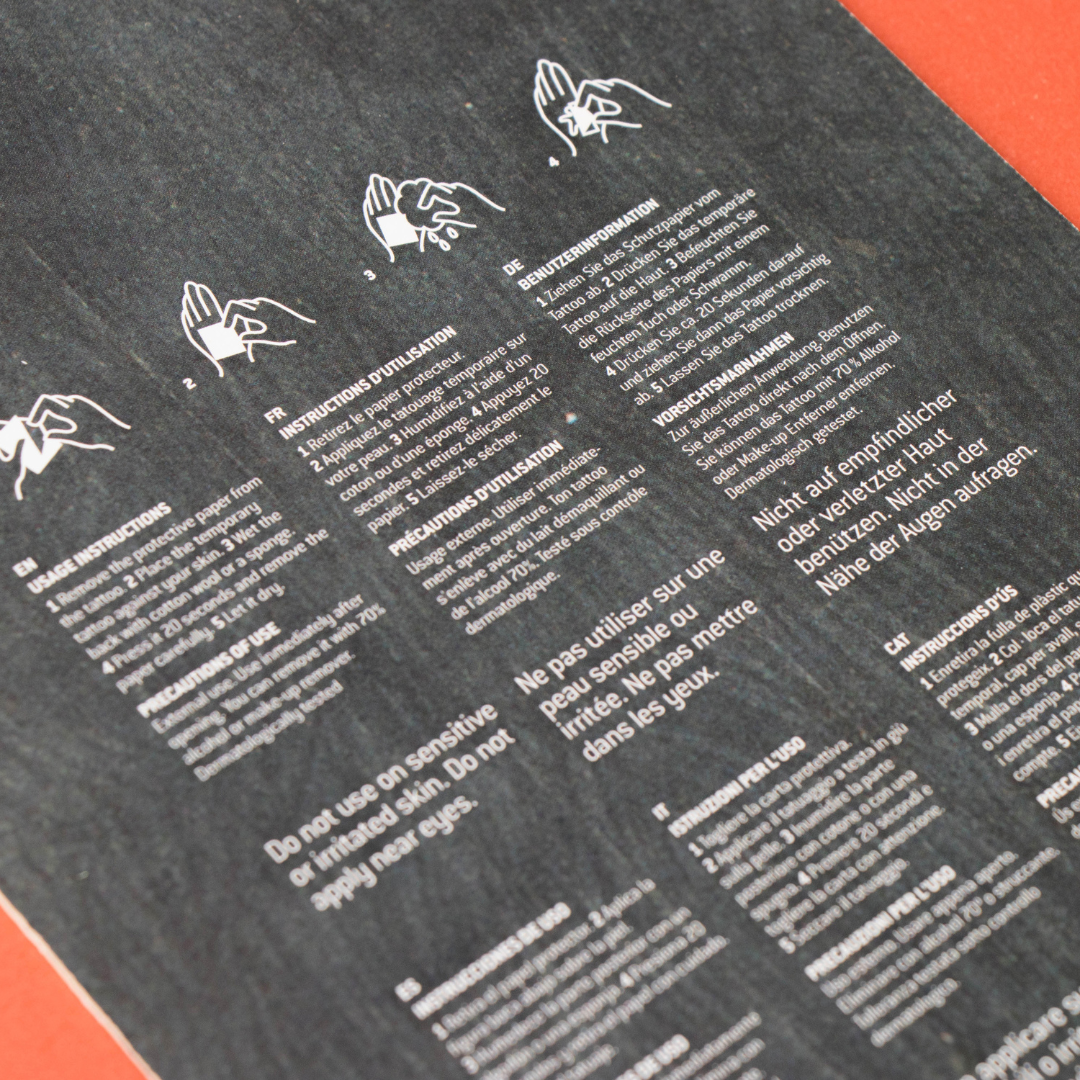 1
2
3
4
EN
USAGE INSTRUCTIONS
1 Remove the protective paper from
the tattoo. 2 Place the temporary
tattoo against your skin. 3 Wet the
back with cotton wool or a sponge.
4 Press it 20 seconds and remove the
paper carefully. 5 Let it dry.
PRECAUTIONS OF USE
External use. Use immediately after
opening. You can remove it with 70%
alcohol or make-up remover.
Dermatologically tested
Do not use on sensitive
or irritated skin. Do not
apply near eyes.
FR
INSTRUCTIONS D'UTILISATION
1 Retirez le papier protecteur.
2 Appliquez le tatouage temporaire sur
votre peau. 3 Humidifiez à l'aide d'un
coton ou d'une éponge. 4 Appuyez 20
secondes et retirez délicatement le
papier. 5 Laissez-le sécher.
PRÉCAUTIONS D'UTILISATION
Usage externe. Utiliser immédiate-
ment après ouverture. Ton tattoo
s'enlève avec du lait démaquillant ou
de l'alcool 70%. Testé sous contrôle
dermatologique.
Ne pas utiliser sur une
peau sensible ou
irritée. Ne pas mettre
dans les yeux.
DE
BENUTZERINFORMATION
1 Ziehen Sie das Schutzpapier vom
Tattoo ab. 2 Drücken Sie das temporäre
Tattoo auf die Haut. 3 Befeuchten Sie
die Rückseite des Papiers mit einem
feuchten Tuch oder Schwamm.
4 Drücken Sie ca. 20 Sekunden darauf
und ziehen Sie dann das Papier vorsichtig
ab. 5 Lassen Sie das Tattoo trocknen.
VORSICHTSMAßNAHMEN
Zur äußerlichen Anwendung. Benutzen
Sie das Tattoo direkt nach dem Öffnen.
Sie können das Tattoo mit 70 % Alkohol
oder Make-up Entferner entfernen.
Dermatologisch getestet.
Nicht auf empfindlicher
oder verletzter Haut
benützen. Nicht in der
Nähe der Augen aufragen.
ES
INSTRUCCIONES DE USO
1 Retira el papel protector. 2 Aplica la
4 Presiona 20
DE USO
IT
ISTRUZIONI PER L'USO
1 Togliere la carta protettiva.
2 Applicare il tatuaggio a testa in giù
sulla pelle. 3 Inumidire la parte
posteriore con cotone o con una
spugna. 4 Premere 20 secondi e
togliere la carta con attenzione.
5 Seccare il tatuaggio.
PRECAUZIONI PER L'USO
Uso esterno. Usare appena aperto.
Eliminare con alcohol 70° o struccante.
applicare su
o irri
CAT
INSTRUCCIONS D'ÚS
1 Enretira la fulla de plàstic qu
protegeix. 2 Col·loca el tatu
temporal, cap per avall, s
3 Mulla el dors del pa
o una esponja. 4 P
i enretira el pa
compte. 5 E
PRECAU